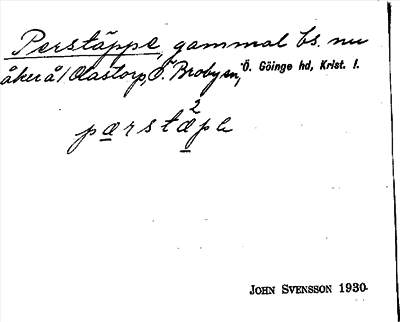 Perstäppe, gammal bs. nu
åker å Olastorp, Ö. Broby sn, Ö. Göinge hd, Krist. l.
pærstæ²pe
JOHN SVENSSON 1930